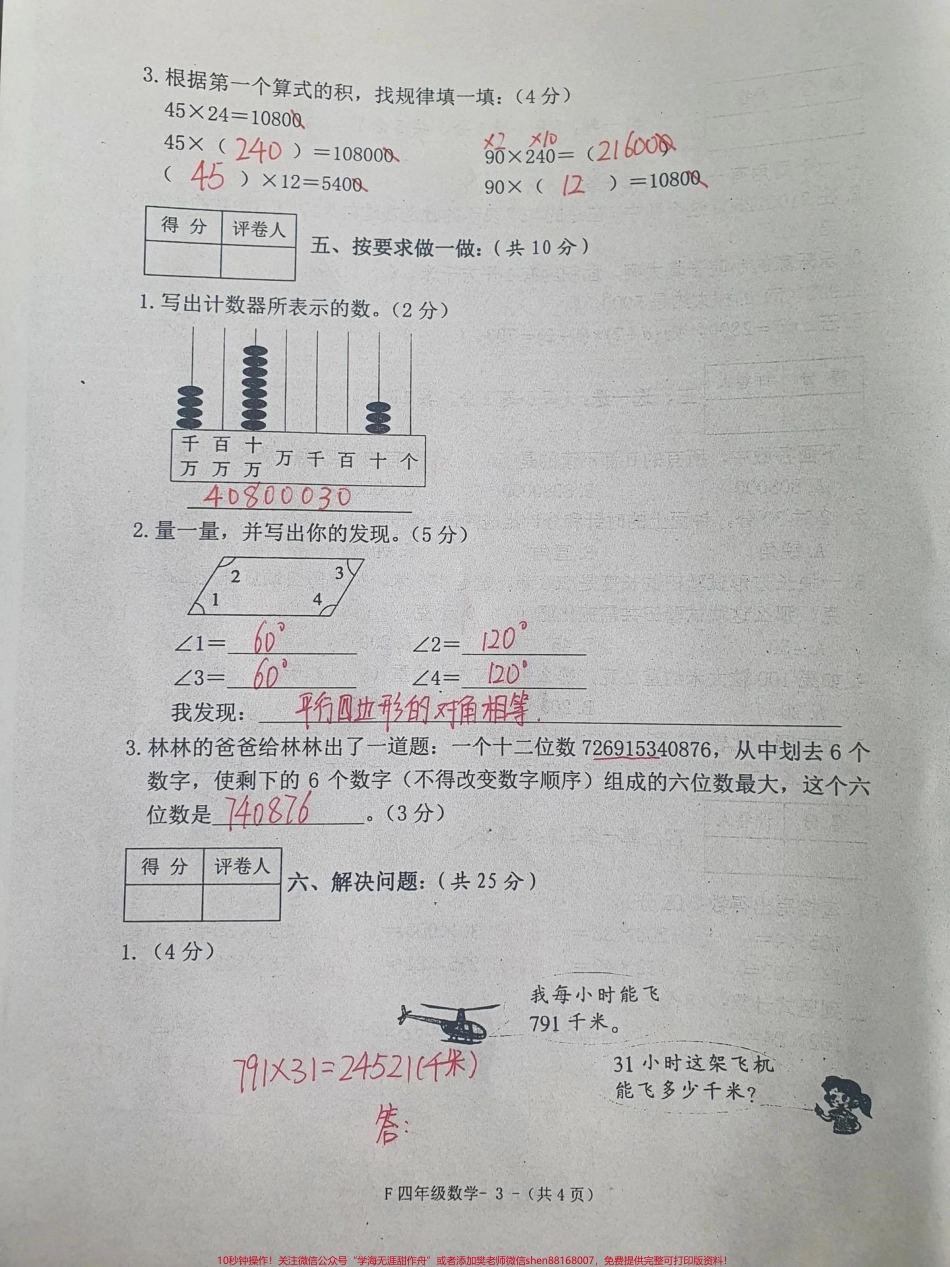 3. 根据第一个算式的积，找规律填一填：（4 分）
45×24=10800
45×（ 240 ）=108000
×2 ×10
90×240=（216000）
（ 45 ）×12=5400
90×（ 12 ）=10800
得 分 评卷人
五、按要求做一做：（共 10 分）
1. 写出计数器所表示的数。（2 分）
千 百 十
万 万 万 万 千 百 十 个
40800030
2. 量一量，并写出你的发现。（5 分）
2 3
1 4
∠1=60° ∠2=120°
∠3=60° ∠4=120°
我发现：平行四边形的对角相等.
3. 林林的爸爸给林林出了一道题：一个十二位数 726915340876，从中划去 6 个
数字，使剩下的 6 个数字（不得改变数字顺序）组成的六位数最大，这个六
位数是740876。（3 分）
得 分 评卷人
六、解决问题：（共 25 分）
1. （4 分）
我每小时能飞
791 千米。
31 小时这架飞机
能飞多少千米？
791×31=24521(千米)
答:
F 四年级数学- 3 -（共 4 页）
10秒钟操作！关注微信公众号“学海无涯甜作舟”或者添加樊老师微信shen88168007，免费提供完整可打印版资料！